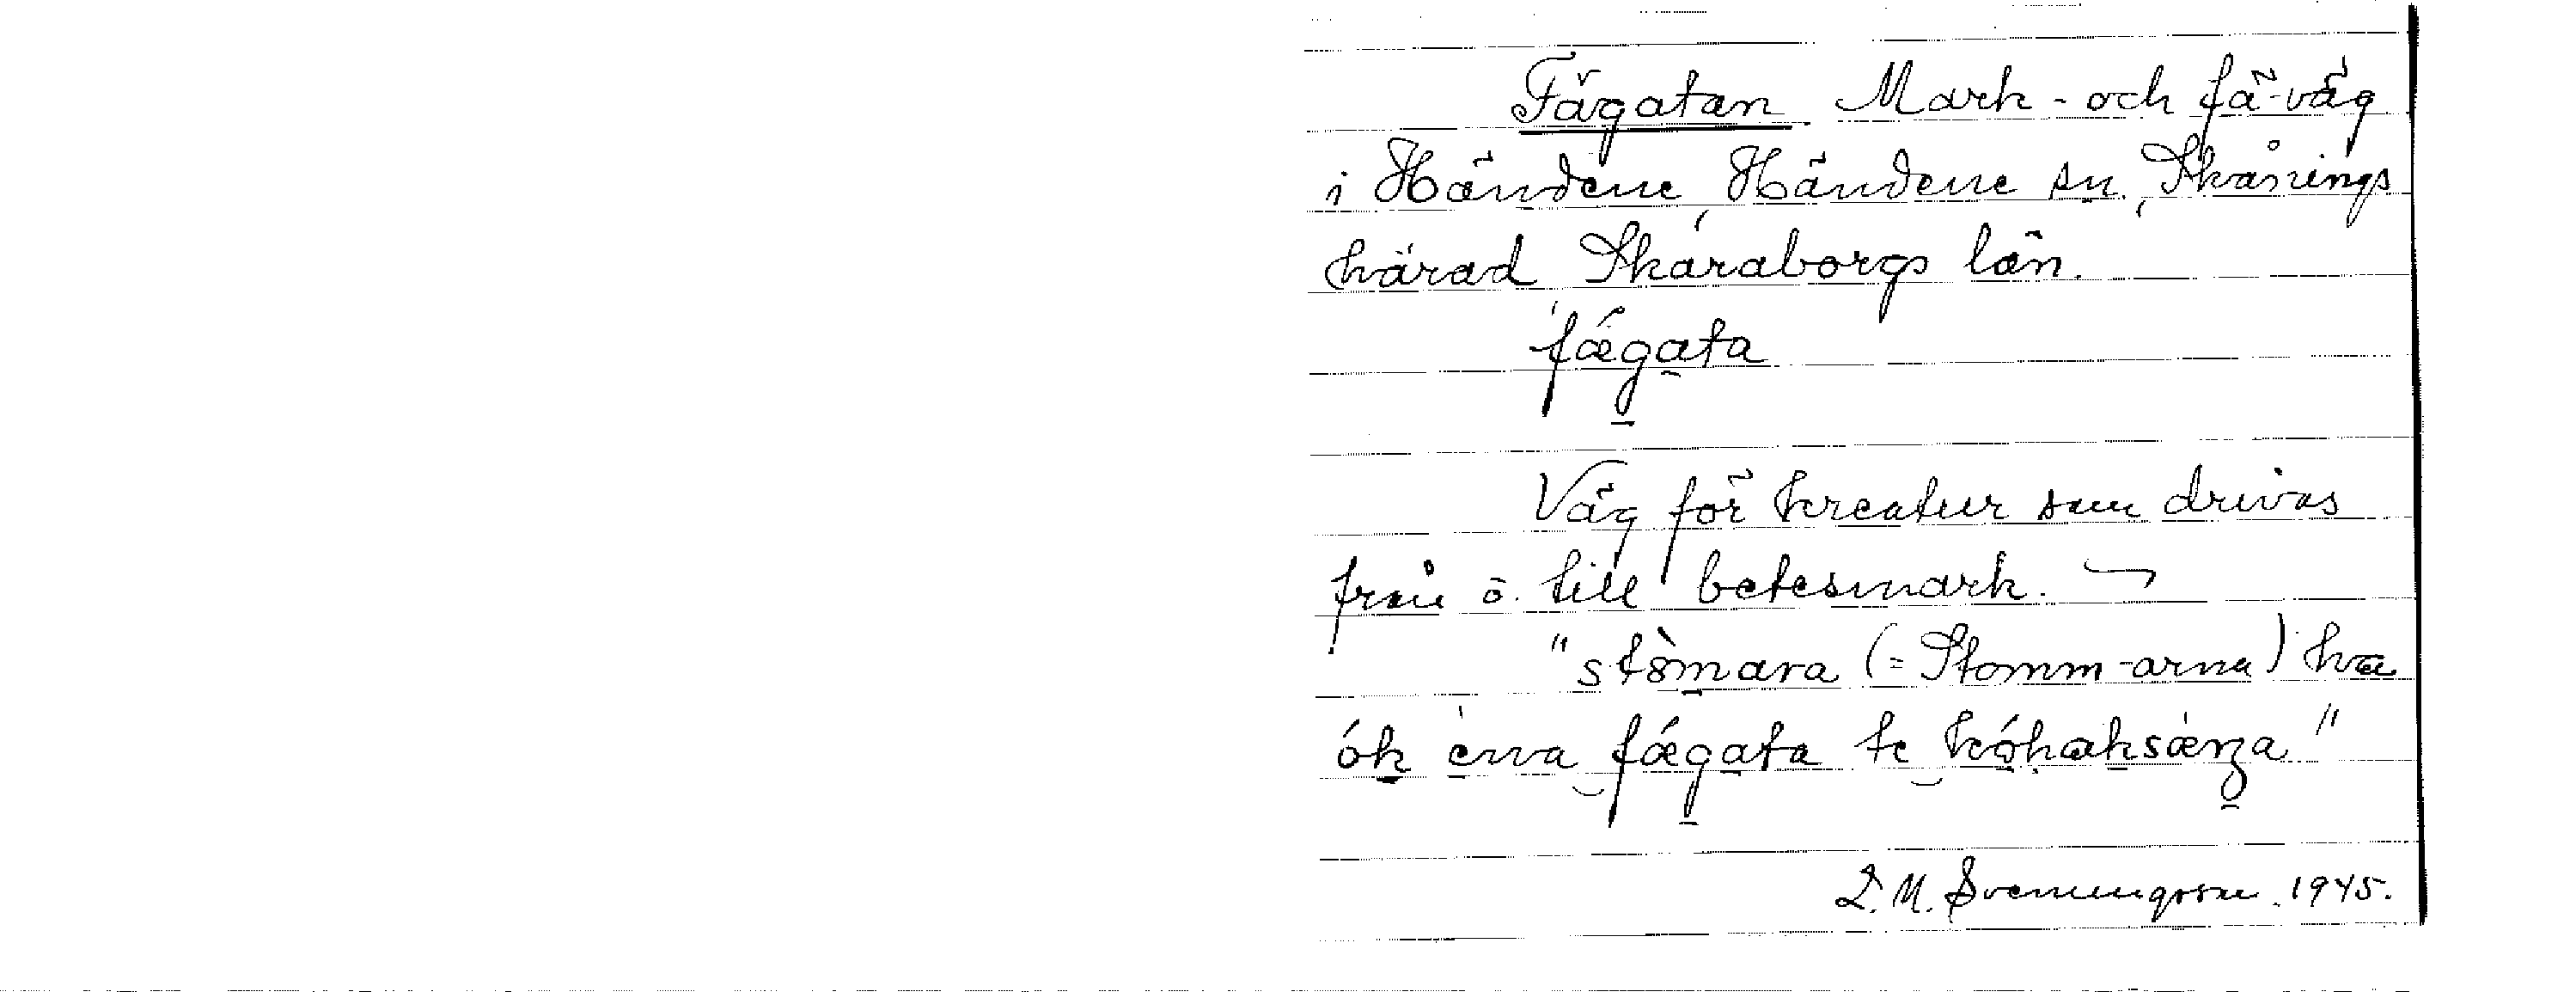 Fägatan. Mark- och fä-väg
i Händene, Händene sn, Skånings
härad, Skaraborgs län.
fǽgata
Väg för kreatur som drivas
från o. till betesmark. ⁓
"stòmara (= Stomm-arna) ha
ók èna fǽgata te kóhaksæ̀ŋa"
L. M. Svenungsson. 1945.